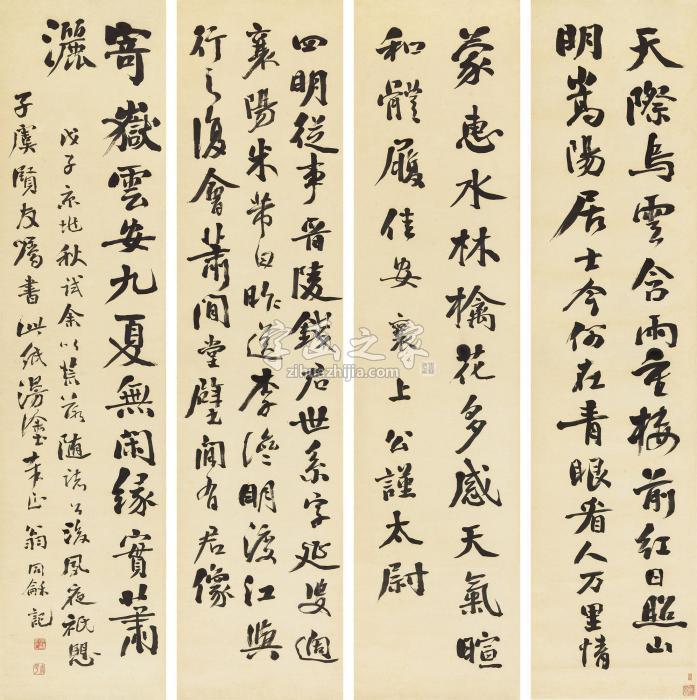 天際烏雲含雨重樓前紅日照山
明嵩陽居士今何在青眼看人万里情
蒙惠水林檎花多感天氣暄
和體履佳安襄上公謹太尉
四明從事晉陵錢君世系字延叟過
襄陽米芾白昨送李澹明渡江與
行之復會蕭閒堂壁間有君像
寄嶽雲安九夏無閑緣實蕭
灑
戊子京地秋試余以荒落隨諸公後夙夜祇懼
子虞賢友囑書此紙漫塗奉正翁同龢記
字画之家
zihuazhijia.com